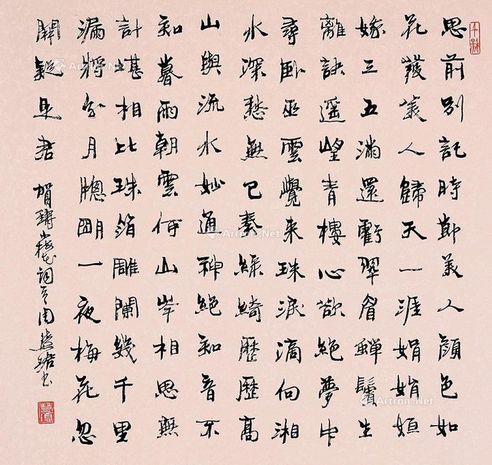 思前別記時節美人顏色如
花發美人歸天一涯娟娟姮
娥三五滿還虧翠眉蟬鬢生
離訣遙望青樓心欲絕夢中
尋臥巫雲覺來珠淚滴向湘
水深愁無已奏綠綺歷歷高
山與流水妙通神絕知音不
知暮雨朝雲何山岑相思無
計堪相比珠箔雕闌幾千里
漏將分月窗明一夜梅花忽
開疑是君 賀鑄梅花詞 周慧珺書
Artron.Net